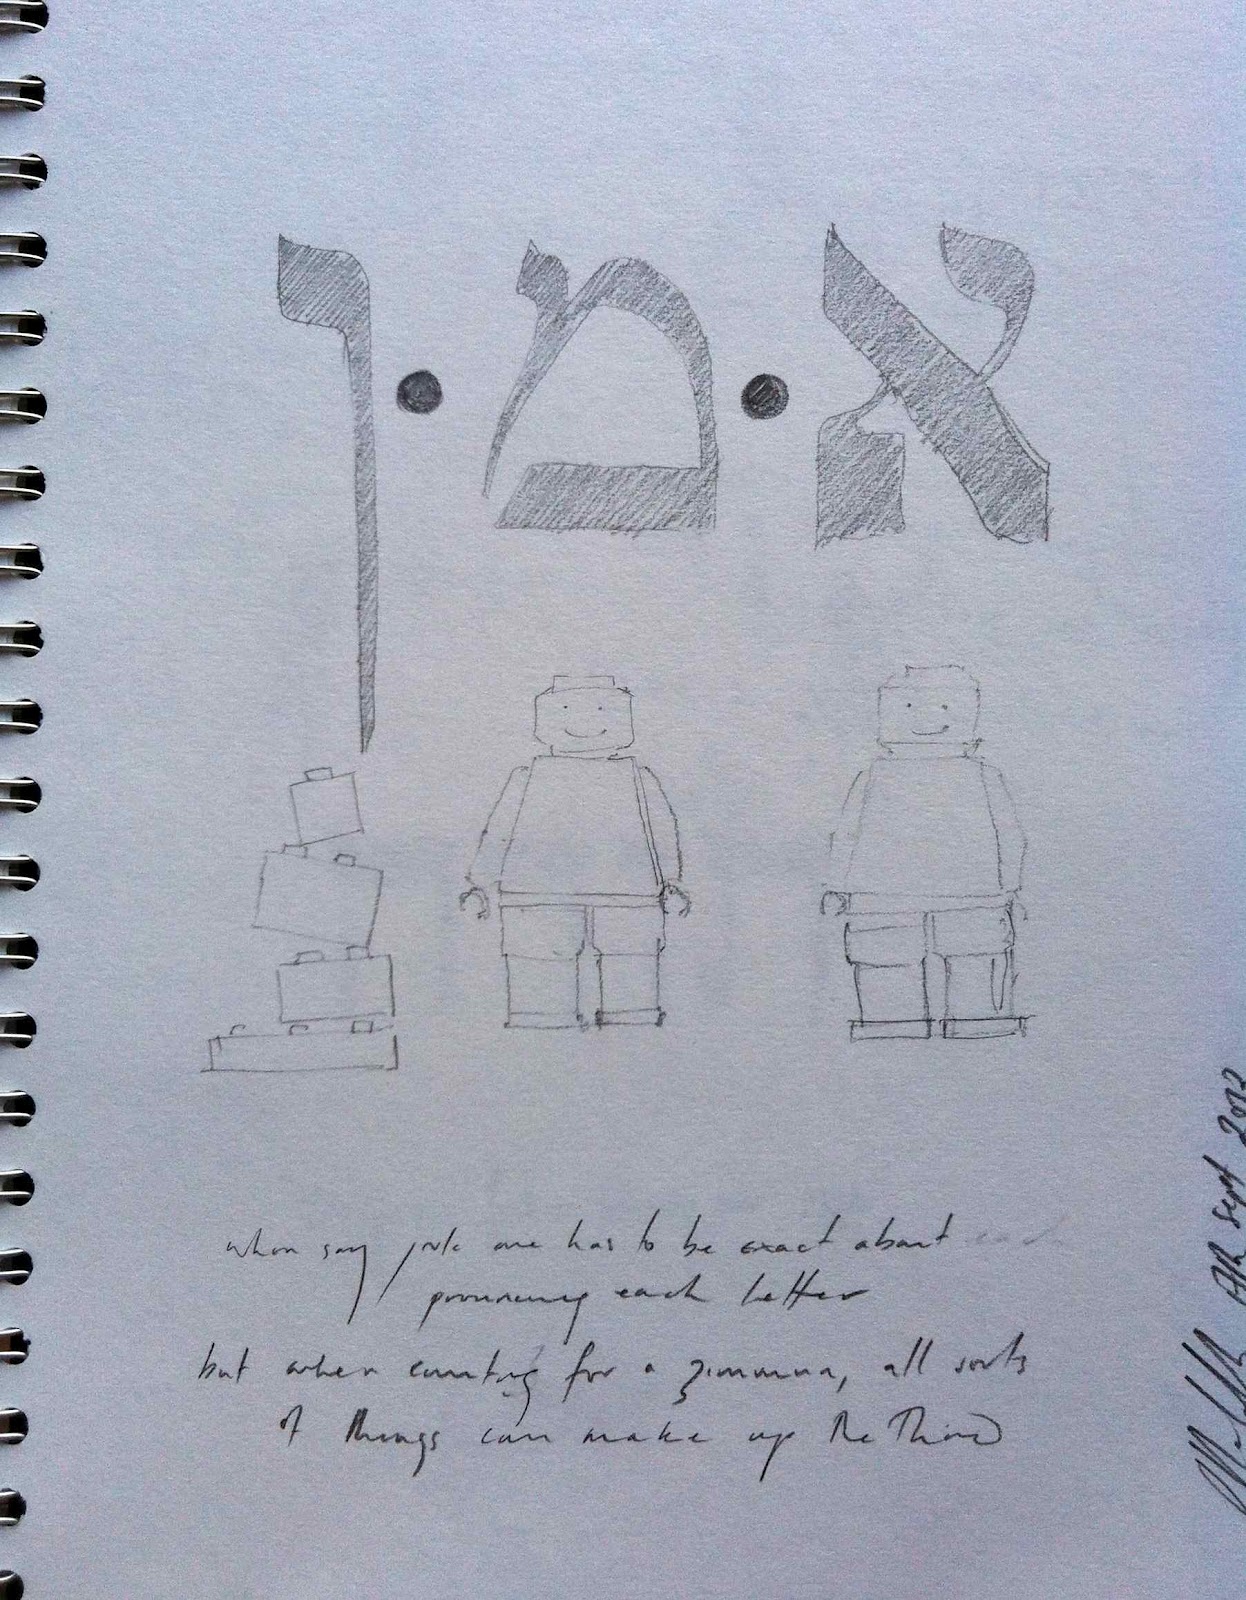 א • מ • ן
when say one has to be exact about each
pronouncing each letter
but when counting for a zimmuna, all sorts
of things can make up the Third
Sept 2012